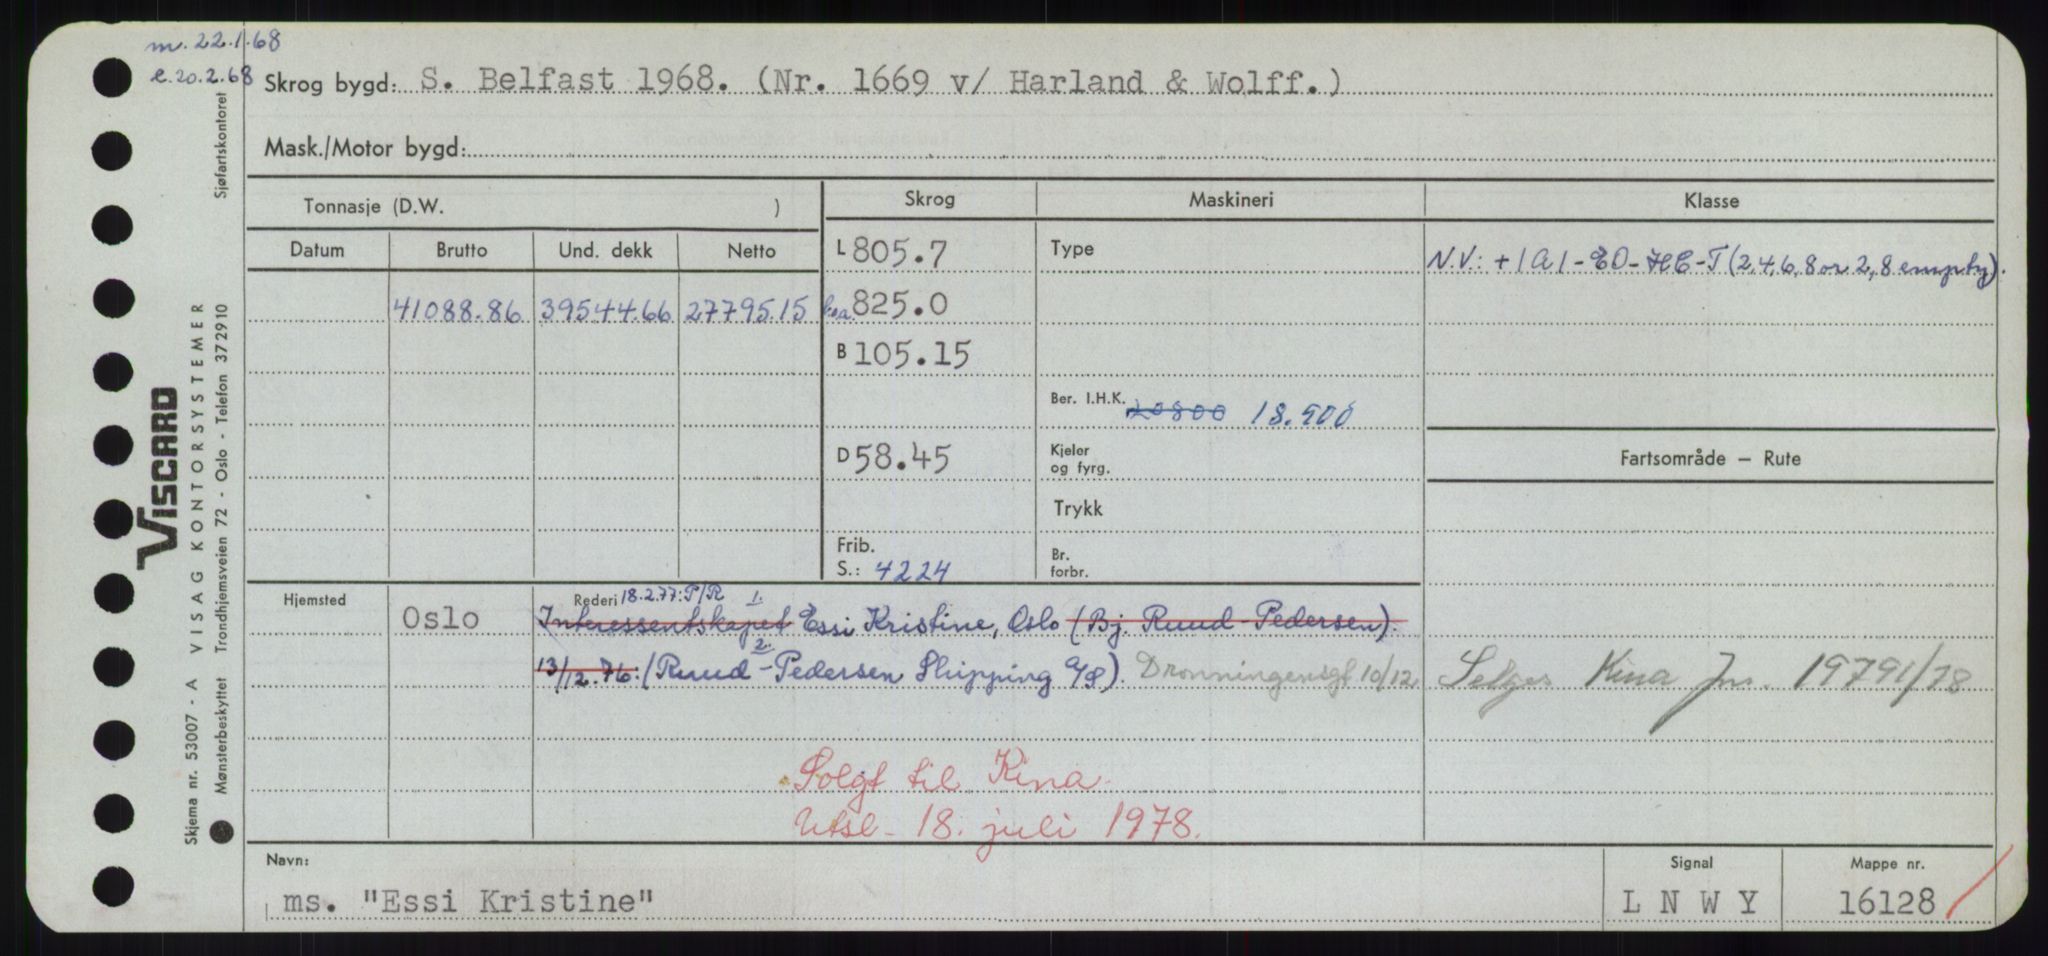 m. 22.1.68
e. 20.2.68
Skrog bygd: S. Belfast 1968. (Nr. 1669 v/ Harland & Wolff.)
Mask./Motor bygd:
Tonnasje (D.W. )
Skrog Maskineri Klasse
Datum Brutto Und. dekk Netto
L 805.7 Type N.V.: + 1A1 - EO - HC - T (2,4,6,8 or 2,8 empty).
41088.86 39544.66 27795.15 l.o.a. 825.0
B 105.15
Ber. I.H.K. 20800 18.900
D 58.45 Kjeler og fyrg. Fartsområde — Rute
Trykk
Frib. S.: 4224 Br. forbr.
Hjemsted Oslo Rederi 18.2.77: P/R 1.
Interessentskapet Essi Kristine, Oslo (Bj. Ruud-Pedersen).
2.
13/12.76: (Ruud-Pedersen Shipping A/S). Dronningensgt 10/12 Selges Kina 1979 1/78
Solgt til Kina
Utsl. 18. juli 1978.
Navn: ms. "Essi Kristine" Signal L N W Y Mappe nr. 16128
VISCARD
Skjema nr. 53007 - A VISAG KONTORSYSTEMER
Mønsterbeskyttet Trondhjemsveien 72 - Oslo - Telefon 37 29 10 Sjøfartskontoret